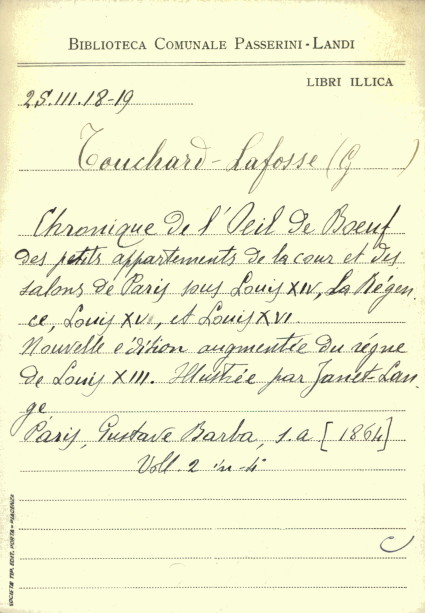 BIBLIOTECA COMUNALE PASSERINI-LANDI
LIBRI ILLICA
2S.III.18-19
Touchard-Lafosse (G )
Chronique de l'Oeil de Boeuf
des petits appartements de la cour et des
salons de Paris sous Louis XIV, la Régen-
ce, Louis XV, et Louis XVI
Nouvelle edition augmentée du régne
de Louis XIII. Illustrée par Janet-Lan-
ge
Paris, Gustave Barba, s.a [1864]
Voll. 2 in-4